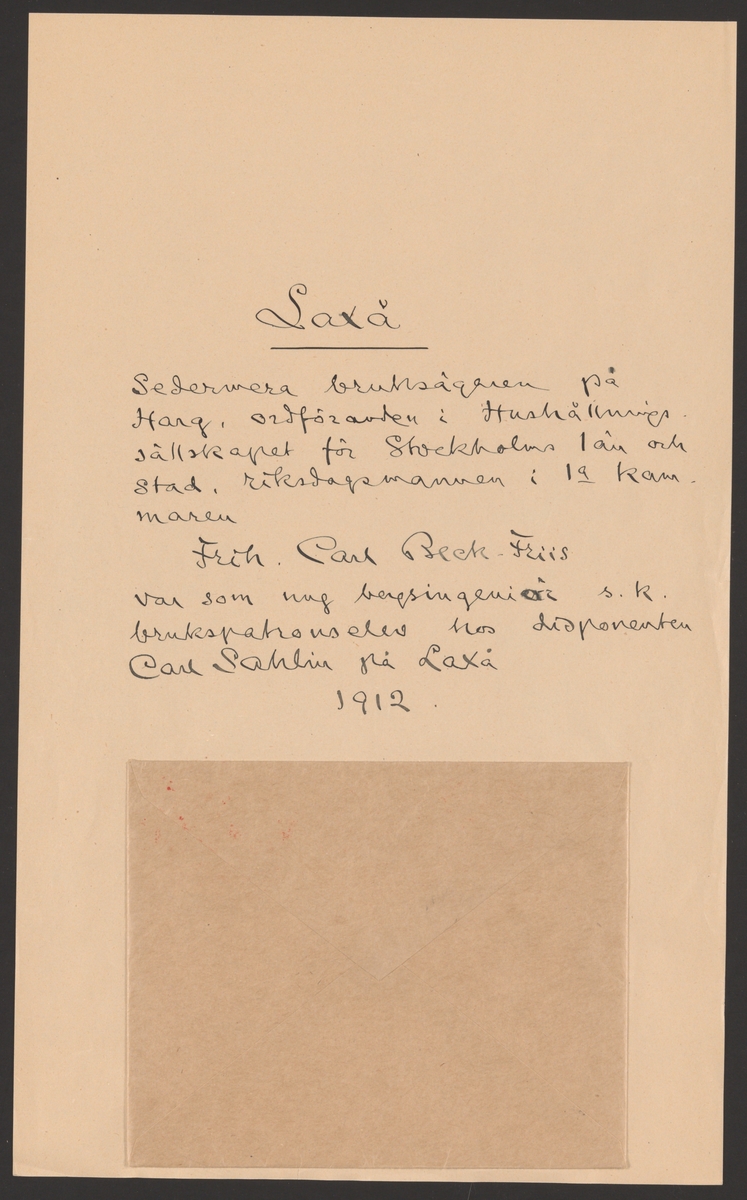 Laxå
Sedermera bruksägaren på
Harg, ordföranden i Hushållnings-
sällskapet för Stockholms län och
stad, riksdagsmannen i 1a kam-
maren
Frih. Carl Beck-Friis
var som ung bergsingeniör s.k.
brukspatronselev hos disponenten
Carl Sahlin på Laxå
1912.